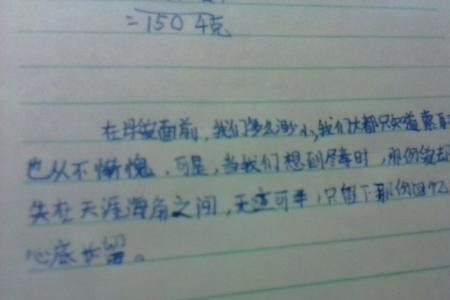 =1504克
在母爱面前，我们多么渺小，我们大都只知道索取
也从不惭愧，可是，当我们想到尽孝时，那份爱却
失在天涯海角之间，无查可寻，只留下那份回忆
心底长留。